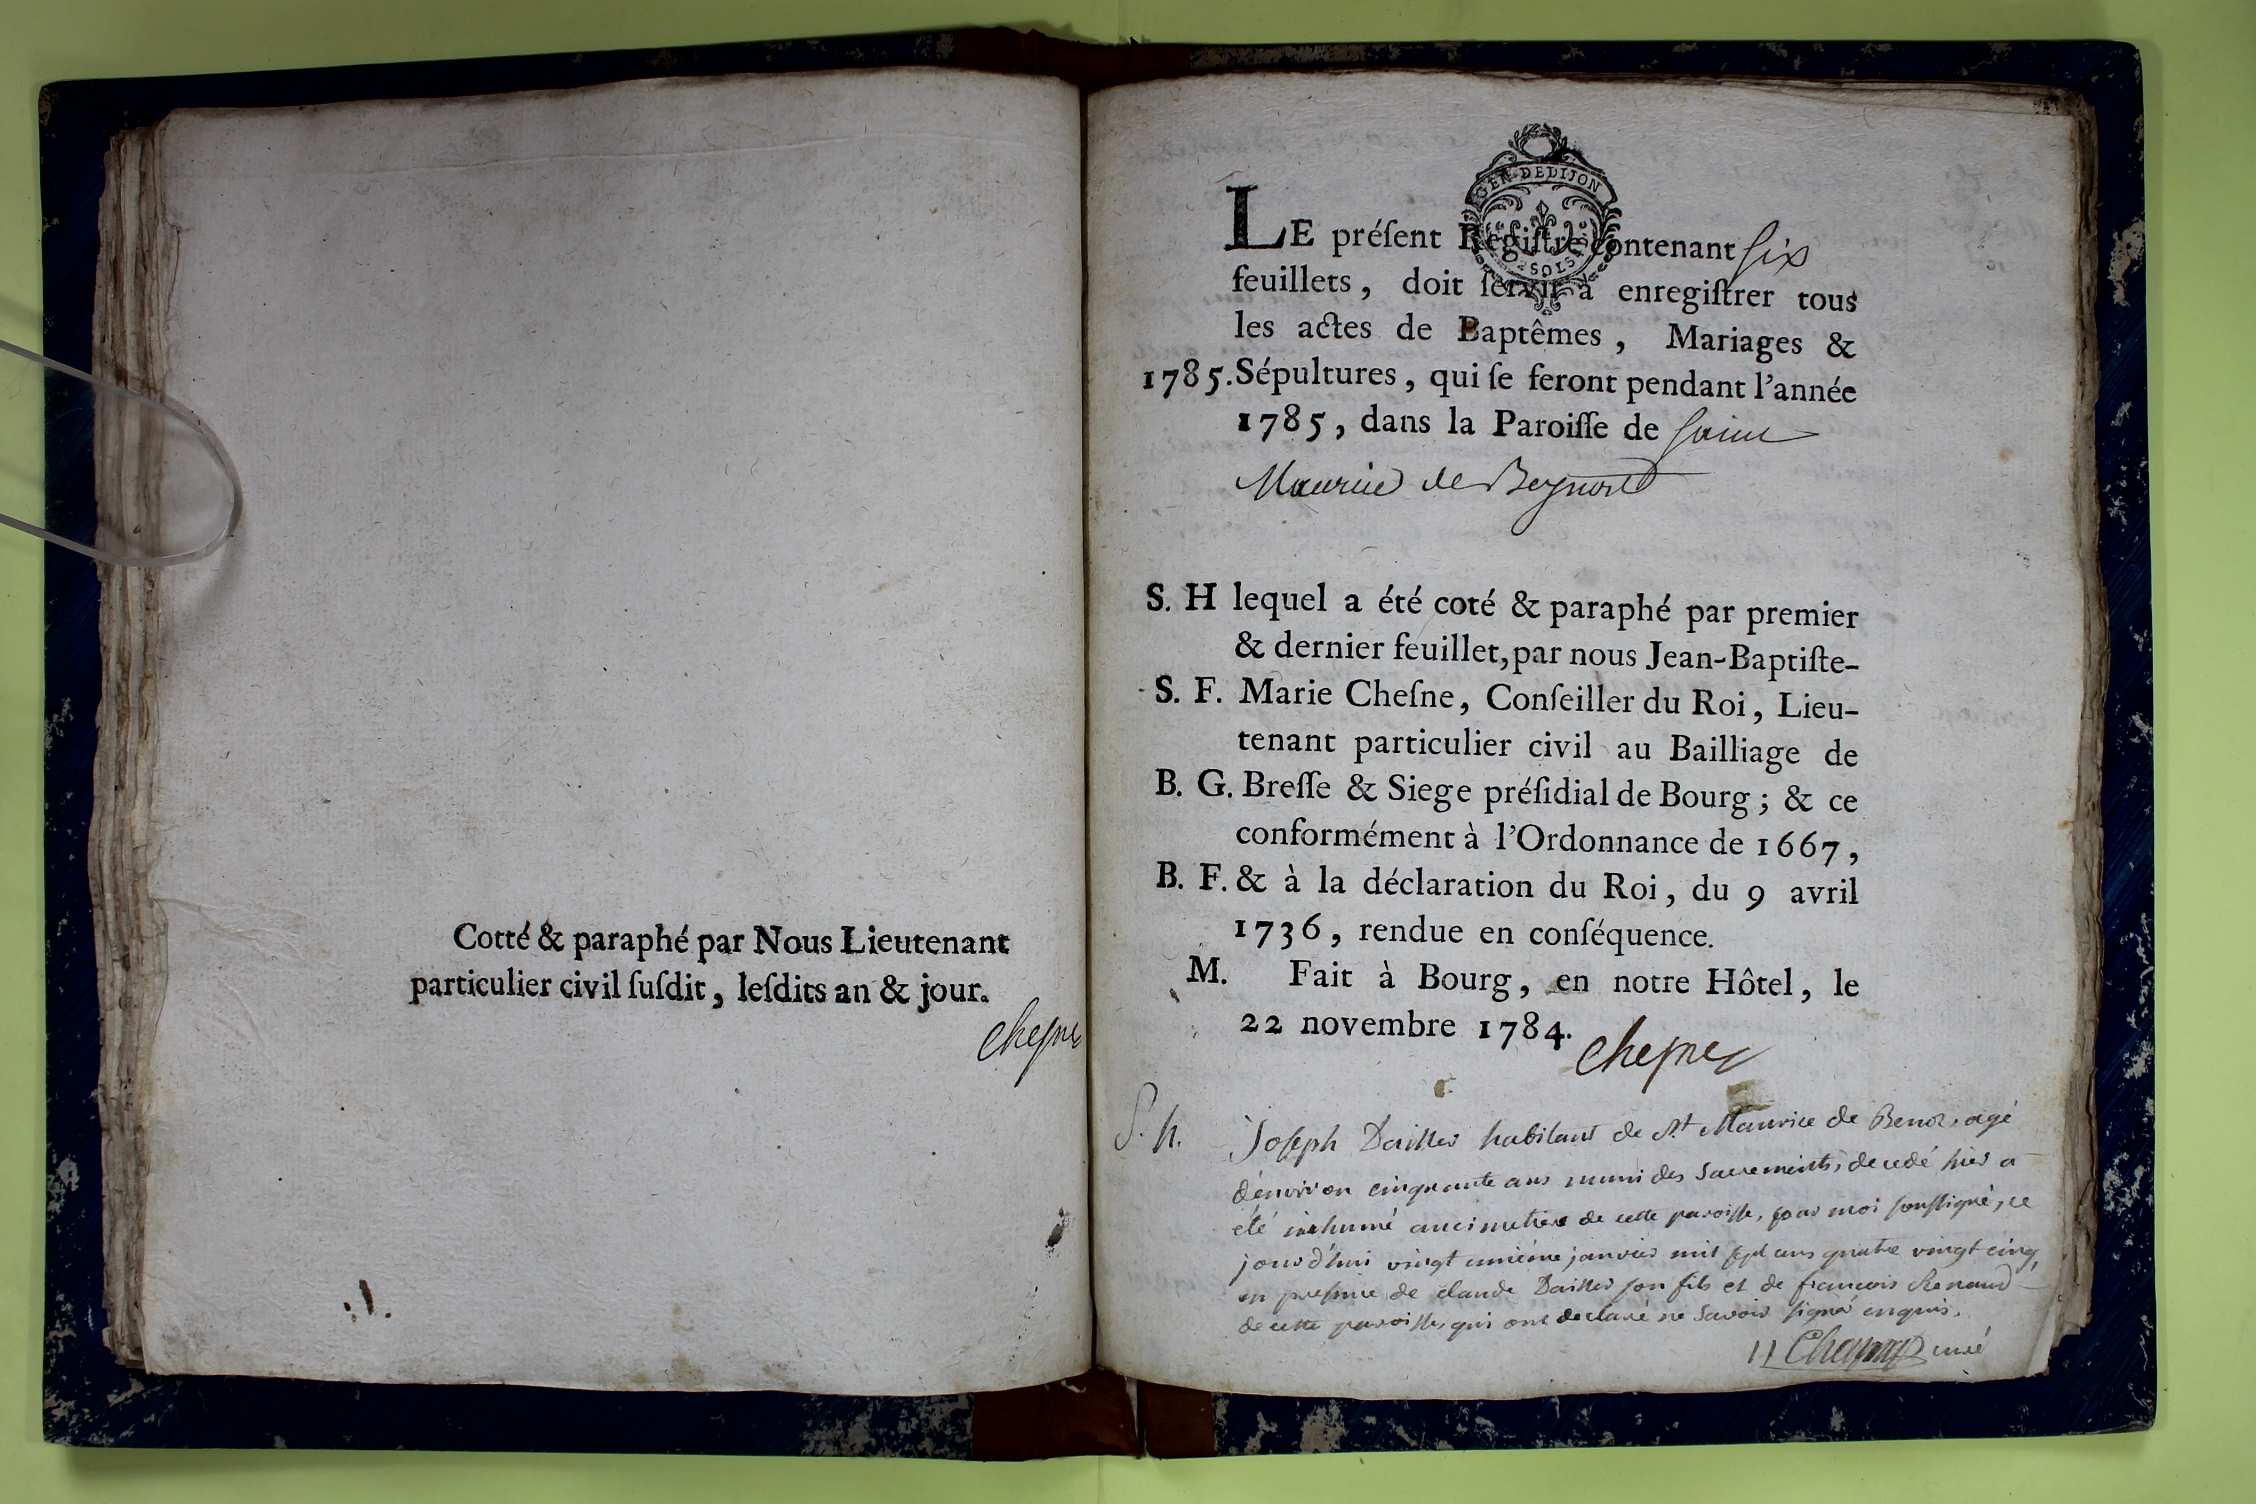 Cotté & paraphé par Nous Lieutenant
particulier civil ſuſdit, leſdits an & jour.
Cheſne
GEN. DE DIJON
LE préſent Regiſtre contenant ſix
feuillets, doit ſervir à enregiſtrer tous
les actes de Baptêmes, Mariages &
1785. Sépultures, qui ſe feront pendant l'année
1785, dans la Paroiſſe de ſaint
Maurice de Beynost
S. H lequel a été coté & paraphé par premier
& dernier feuillet, par nous Jean-Baptiſte-
S. F. Marie Cheſne, Conſeiller du Roi, Lieu-
tenant particulier civil au Bailliage de
B. G. Breſſe & Siege préſidial de Bourg; & ce
conformément à l'Ordonnance de 1667,
B. F. & à la déclaration du Roi, du 9 avril
1736, rendue en conſéquence.
M. Fait à Bourg, en notre Hôtel, le
22 novembre 1784.
Cheſne
S. h. Joseph Daillier habitant de St Maurice de Benost, agé
d'environ cinquante ans muni des Sacrements, decedé hier a
été inhumé au cimetiere de cette paroisse, par moi soussigné, ce
jourd'hui vingt unième janvier mil sept cens quatre vingt cinq,
en presence de claude Daillier son fils et de francois Renaud
de cette paroisse, qui ont declaré ne Savoir signer enquis.
curé